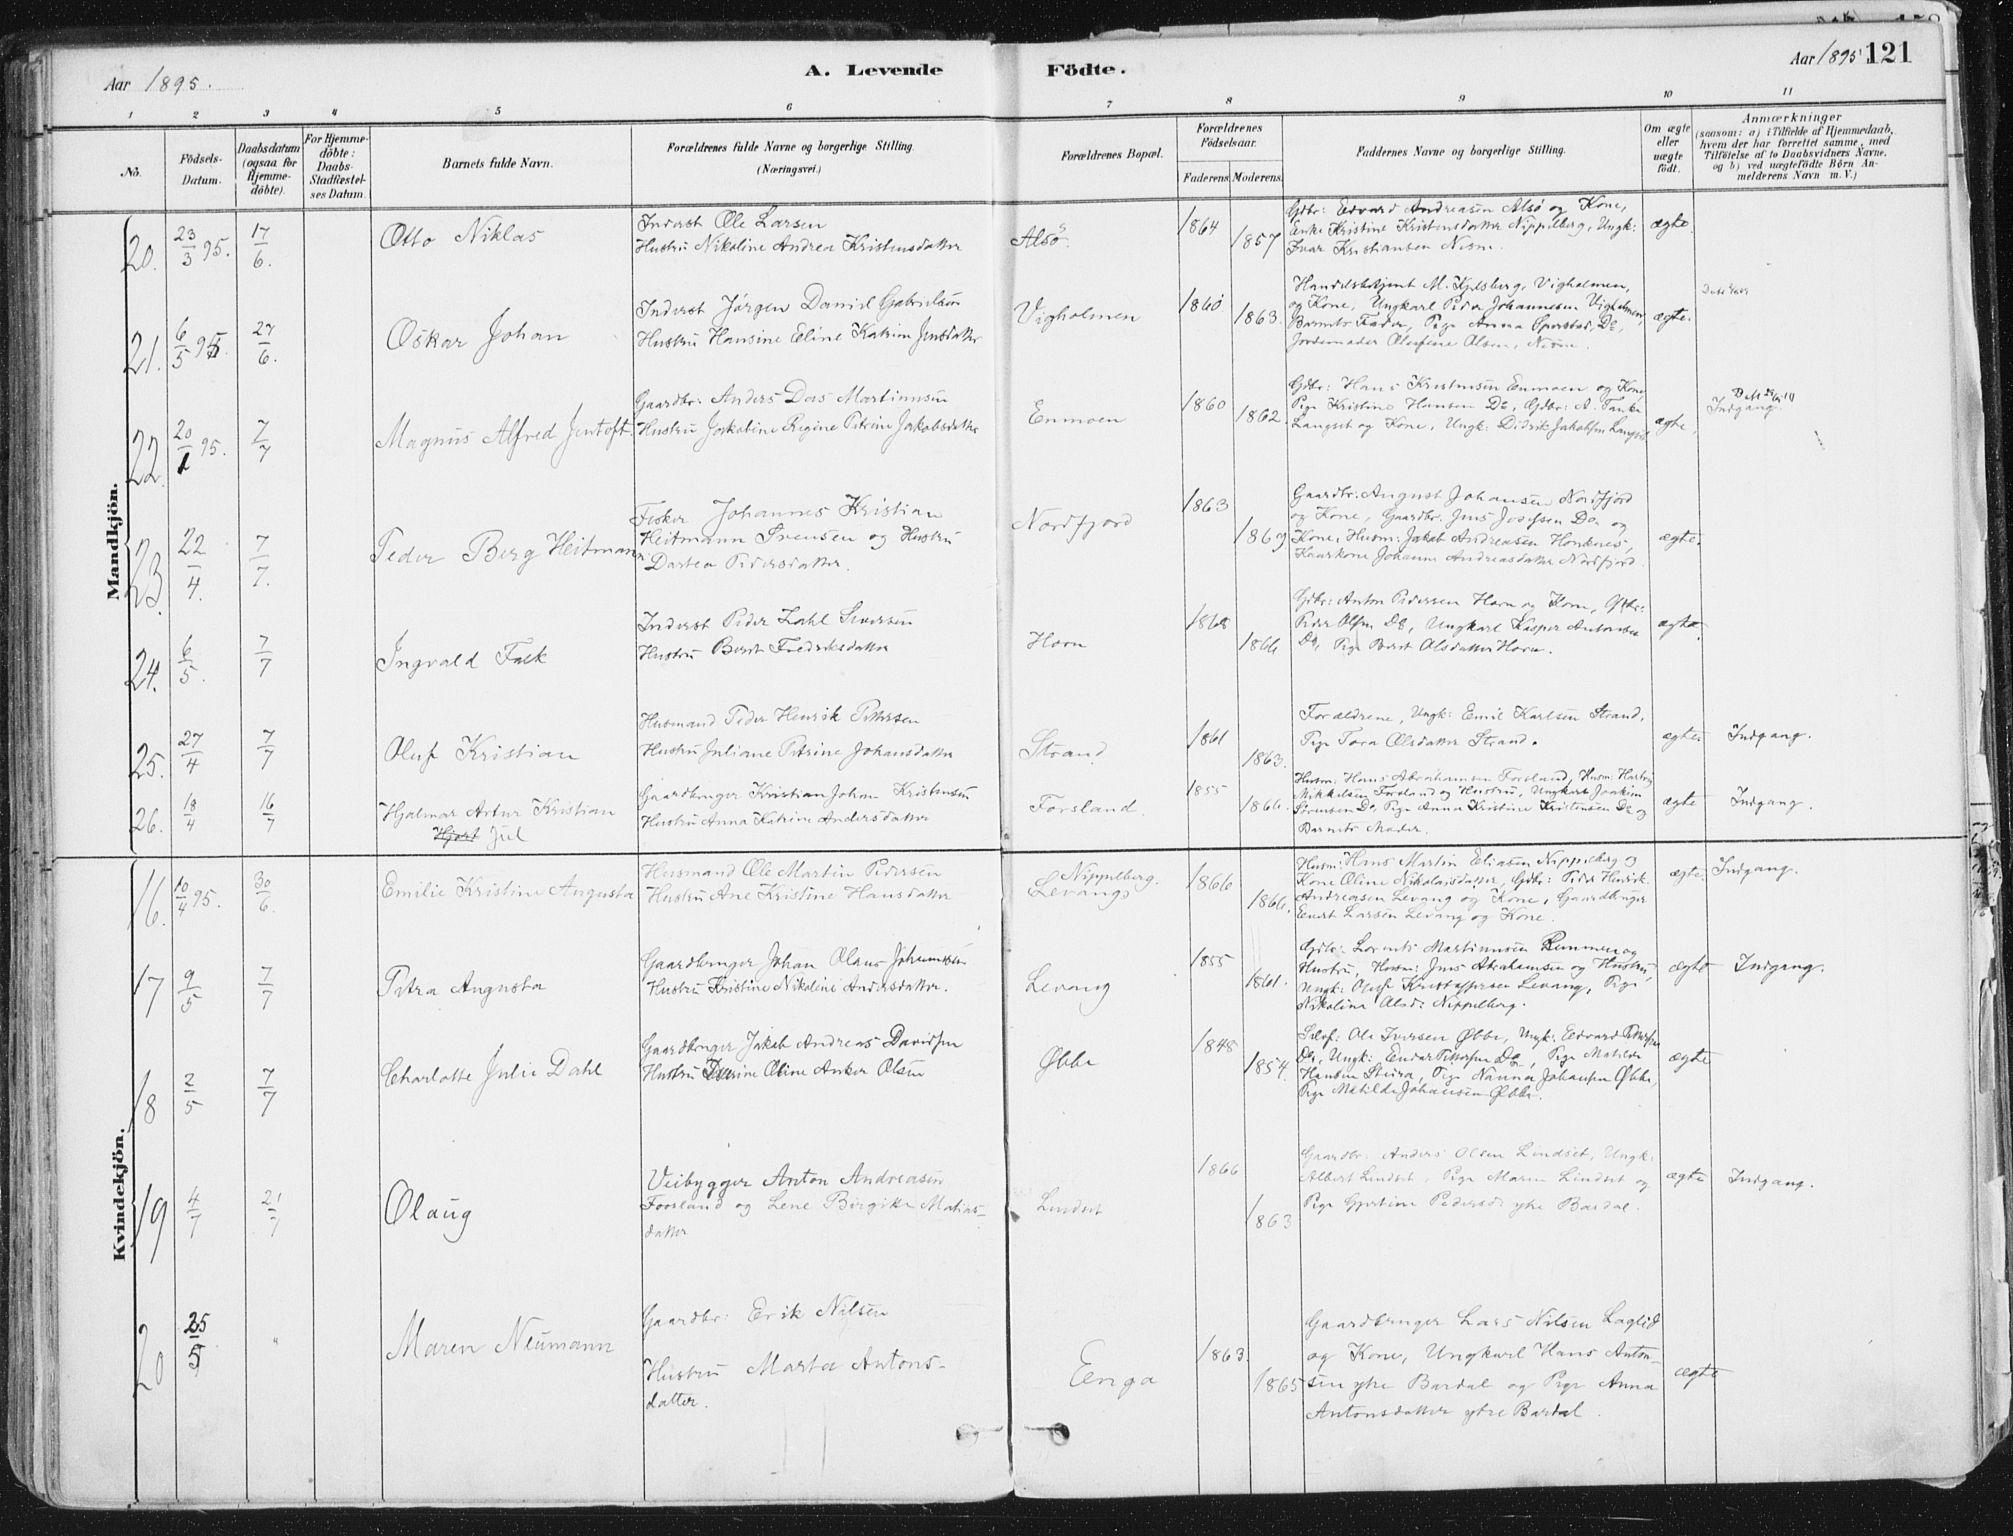 Aar 1895.
A. Levende Födte.
Aar 1895 121
1 2 3 4 5 6 7 8 9 10 11
No.
Födsels-
Datum.
Daabsdatum
(ogsaa for
Hjemme-
döbte).
For Hjemme-
döbte:
Daabs-
Stadfæstel-
ses Datum.
Barnets fulde Navn.
Forældrenes fulde Navne og borgerlige Stilling.
(Næringsvei.)
Forældrenes Bopæl.
Forældrenes
Födselsaar.
Faderens Moderens.
Faddernes Navne og borgerlige Stilling.
Om ægte
eller
uægte
födt.
Anmærkninger
(saasom: a) i Tilfælde af Hjemmedaab,
hvem der har forrettet samme, med
Tilföielse af to Daabsvidners Navne,
og b) ved uægtefödte Börn An-
melderens Navn m. V.)
Mandkjön.
20. 23/3 95. 17/6.
Otto Niklas
Inderst Ole Larsen
Hustru Nikoline Andrea Kristensdatter
Alsö
1864 1857
Gdbr: Edvard Andreasen Alsö og Kone,
Enke Kristine Kristensdatter Nippelberg, Ungk:
Ivar Kristiansen Nesne.
ægte.
21. 6/5 95. 27/6.
Oskar Johan
Inderst Jörgen Daniel Gabrielsen
Hustru Hansine Eline Katrine Jensdatter
Vigholmen
1860 1863.
Handelsbetjent M. Kjelsberg, Vigholmen,
og Kone, Ungkarl Peder Johannesen Vigholmen,
Barnets Fader, Pige Anna Do,
Jordemoder Olufine Olsen, Nesne.
ægte.
22. 20/1 95. 7/7
Magnus Alfred Jentoft.
Gaardbr: Anders Das Martinusen
Hustru Jakobine Regine Petrine Jakobsdatter
Enmoen
1860 1862.
Gdbr: Hans Kristensen Enmoen og Kone,
Pige Kristine Hansen Do, Gdbr: A. Tanke
Langset og Kone, Ungk: Didrik Jakobsen Langset
ægte,
Indgang.
23. 22/4. 7/7.
Peder Berg Heitmann
Fisker Johannes Kristian
Heitmann Svensen og Hustru
Dortea Pedersdatter.
Nordfjord
1863 1869
Gaardbr: August Johansen Nordfjord
og Kone, Gaardbr. Jens Josefsen Do og
Kone, Husm: Jakob Andreasen Honknes,
Kaarkone Johanna Andreasdatter Nordfjord.
ægte.
24. 6/5. 7/7
Ingvald Falk
Inderst Peder Zahl Sivertsen
Hustru Berit Fredriksdatter
Horn
1868 1866
Gdbr: Anton Pedersen Horn og Kone, Gdbr:
Peder Olsen Do, Ungkarl Kasper Antonsen
Do, Pige Berit Olsdatter Horn.
ægte.
25. 27/4 7/7
Oluf Kristian
Husmand Peder Henrik Pettersen
Hustru Juliane Petrine Johansdatter
Strand
1861 1863.
Forældrene, Ungk: Emil Karlsen Strand,
Pige Tora Olsdatter Strand.
ægte
Indgang.
26. 18/4 16/7
Hjalmar Artur Kristian
Hjort Jul
Gaardbruger Kristian Johan Kristensen
Hustru Anna Katrine Andersdatter
Forsland.
1855 1866.
Husm: Hans Abrahamsen Forsland, Husm: Hartvig
Mikkelsen Forsland og Hustru, Ungkarl Joakim
Sörensen Do, Pige Anna Kristine Kristensen Do og
Barnets Moder.
ægte
Indgang.
Kvindekjön.
16. 10/4 95. 30/6.
Emilie Kristine Augusta
Husmand Ole Martin Pedersen
Hustru Ane Kristine Hansdatter
Nippelberg.
Levangs
1866 1866.
Husm: Hans Martin Eliasen Nippelberg og
Kone Oline Nikolaisdatter, Gdbr: Peder Henrik
Andreasen Levang og Kone, Gaardbruger
Enert Larsen Levang og Kone.
ægte.
Indgang.
17 9/5 7/7
Petra Augusta
Gaardbruger Johan Olaus Johannesen
Hustru Kristine Nikoline Andersdatter.
Levang
1855 1861.
Gdbr: Lorents Martinusen Remmen og
Hustru, Husm: Jens Abrahamsen og Hustru,
Ungk: Oluf Kristoffersen Levang, Pige
Nikolina Olsd: Nippelberg.
ægte
Indgang.
18 2/5 7/7
Charlotte Julie Dahl
Gaardbruger Jakob Andreas Davidsen
Hustru Oline Anker Olsen
Öbbe
1848 1854.
Selvf: Ole Iversen Öbbe, Ungk: Edvard Pettersen
Do, Ungk: Endar Pettersen Do, Pige Matilde
Hansen Steira, Pige Nanna Johansen Öbbe,
Pige Matilde Johansen Öbbe.
ægte
19 4/7 21/7
Olaug
Veibygger Anton Andreasen
Forsland og Lene Birgitte Matias-
datter
Lindset
1866 1863
Gaardbr: Anders Olsen Lindset, Ungk:
Albert Lindset, Pige Maren Lindset og
Pige Gjertine Pedersd ytre Bardal.
ægte
Indgang.
20 25/5 "
Maren Neumann
Gaardbr: Erik Nilsen
Hustru Marta Antons-
datter.
Enga
1863. 1865
Gaardbruger Lars Nilsen Laglid
og Kone, Ungkarl Hans Anton-
sen ytre Bardal og Pige Anna
Antonsdatter ytre Bardal.
ægte